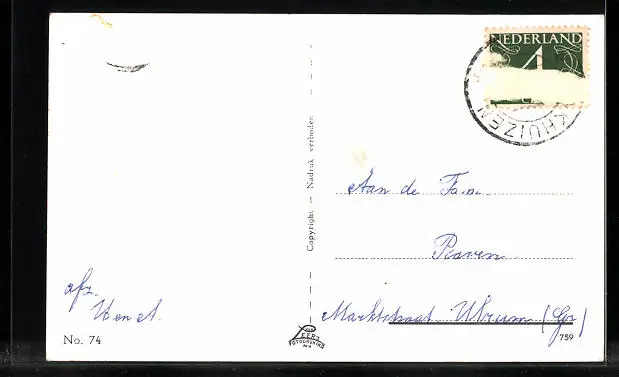 NEDERLAND
4
KHUIZEN
Copyright — Nadruk verboden
Aan de Fam.
Raven
Marktstraat Ulrum (Gr)
afz.
No. 74
FOTODRUKKERIJ
759